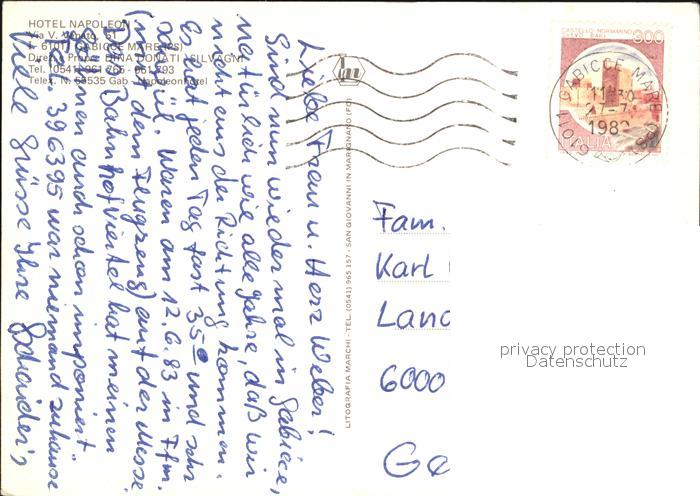 HOTEL NAPOLEON
Via V. Veneto, 161
I- 61011 GABICCE MARE (PS)
Direz. e Propr. DINA DONATI SILVAGNI
Tel. (0541) 961 765 - 961 793
Telex. N. 63535 Gab - Napoleonhotel
Liebe Frau u. Herr Weber!
Sind nun wieder mal in Gabicce,
natürlich wie alle Jahre, daß wir
nicht aus der Richtung kommen.
Es ist jeden Tag fast 35° und sehr
schwül. Waren am 12.6.83 in Ffm.
(mit dem Flugzeug) auf der Messe.
Das Bahnhofviertel hat meinen
auch schon imponiert.
Tel. 396395 war niemand zuhause
Viele Grüsse Ihre Schneider's
LITOGRAFIA MARCHI - TEL. (0541) 965 157 - SAN GIOVANNI IN MARIGNANO (FO)
CASTELLO NORMANNO
SVEVO BARI
300
ITALIA
GABICCE MARE
61011
Fam.
Karl
Land
6000
Ge
privacy protection
Datenschutz